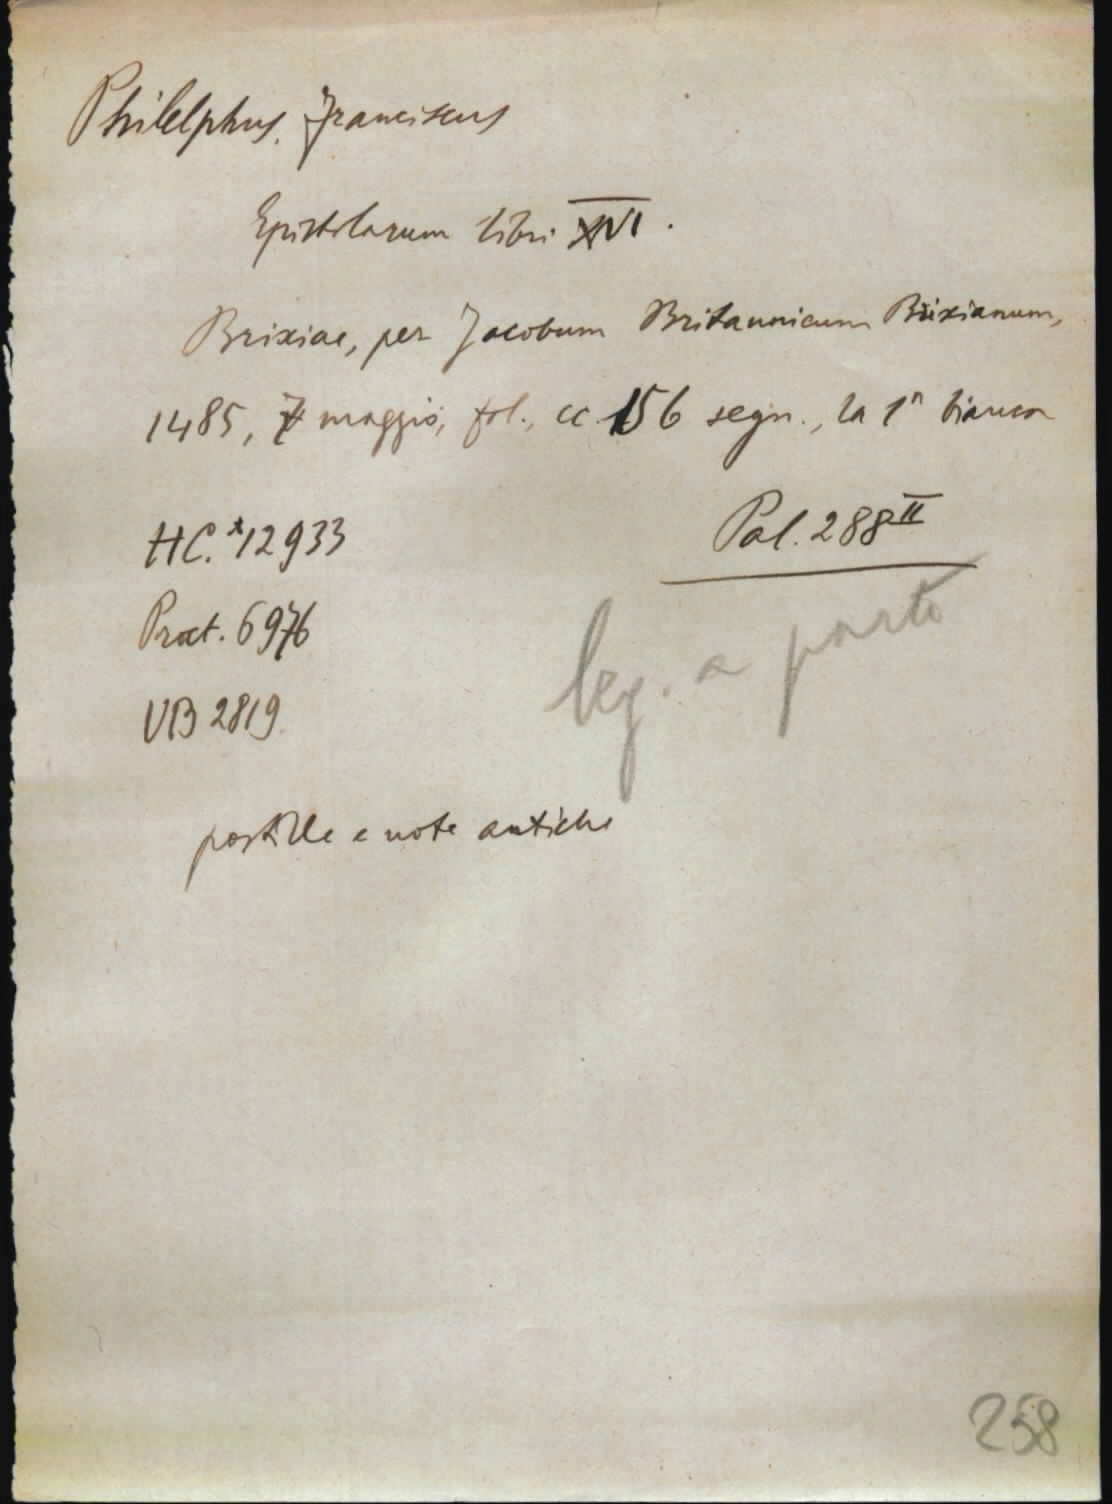 Philelphus, Franciscus
Epistolarum libri XVI.
Brixiae, per Jacobum Britannicum Brixianum,
1485, 7 maggio, fol., cc. 156 segn., la 1ª bianca
HC. *12933
Pal. 288II
Proct. 6976
leg. a parte
VB 2819
postille e note antiche
258